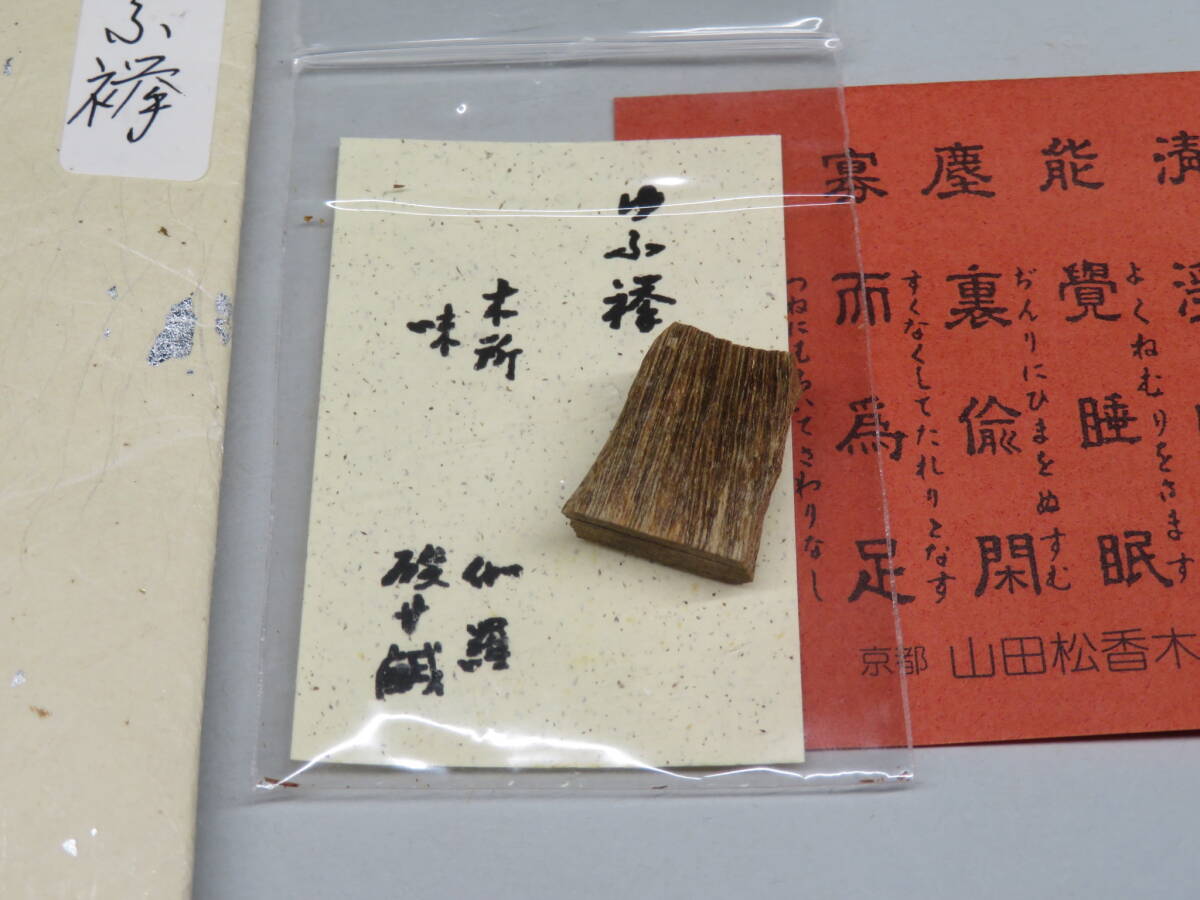 ふ襷
ゆふ襷
木所
伽羅
味
酸 サ 鹹
清
能 覺 睡 眠
よくねむりをさます
塵 裏 偸 閑
ぢんりにひまをぬすむ
寡 而 為 足
すくなくしてたれりとなす
つねにも
てさわりなし
京都 山田松香木